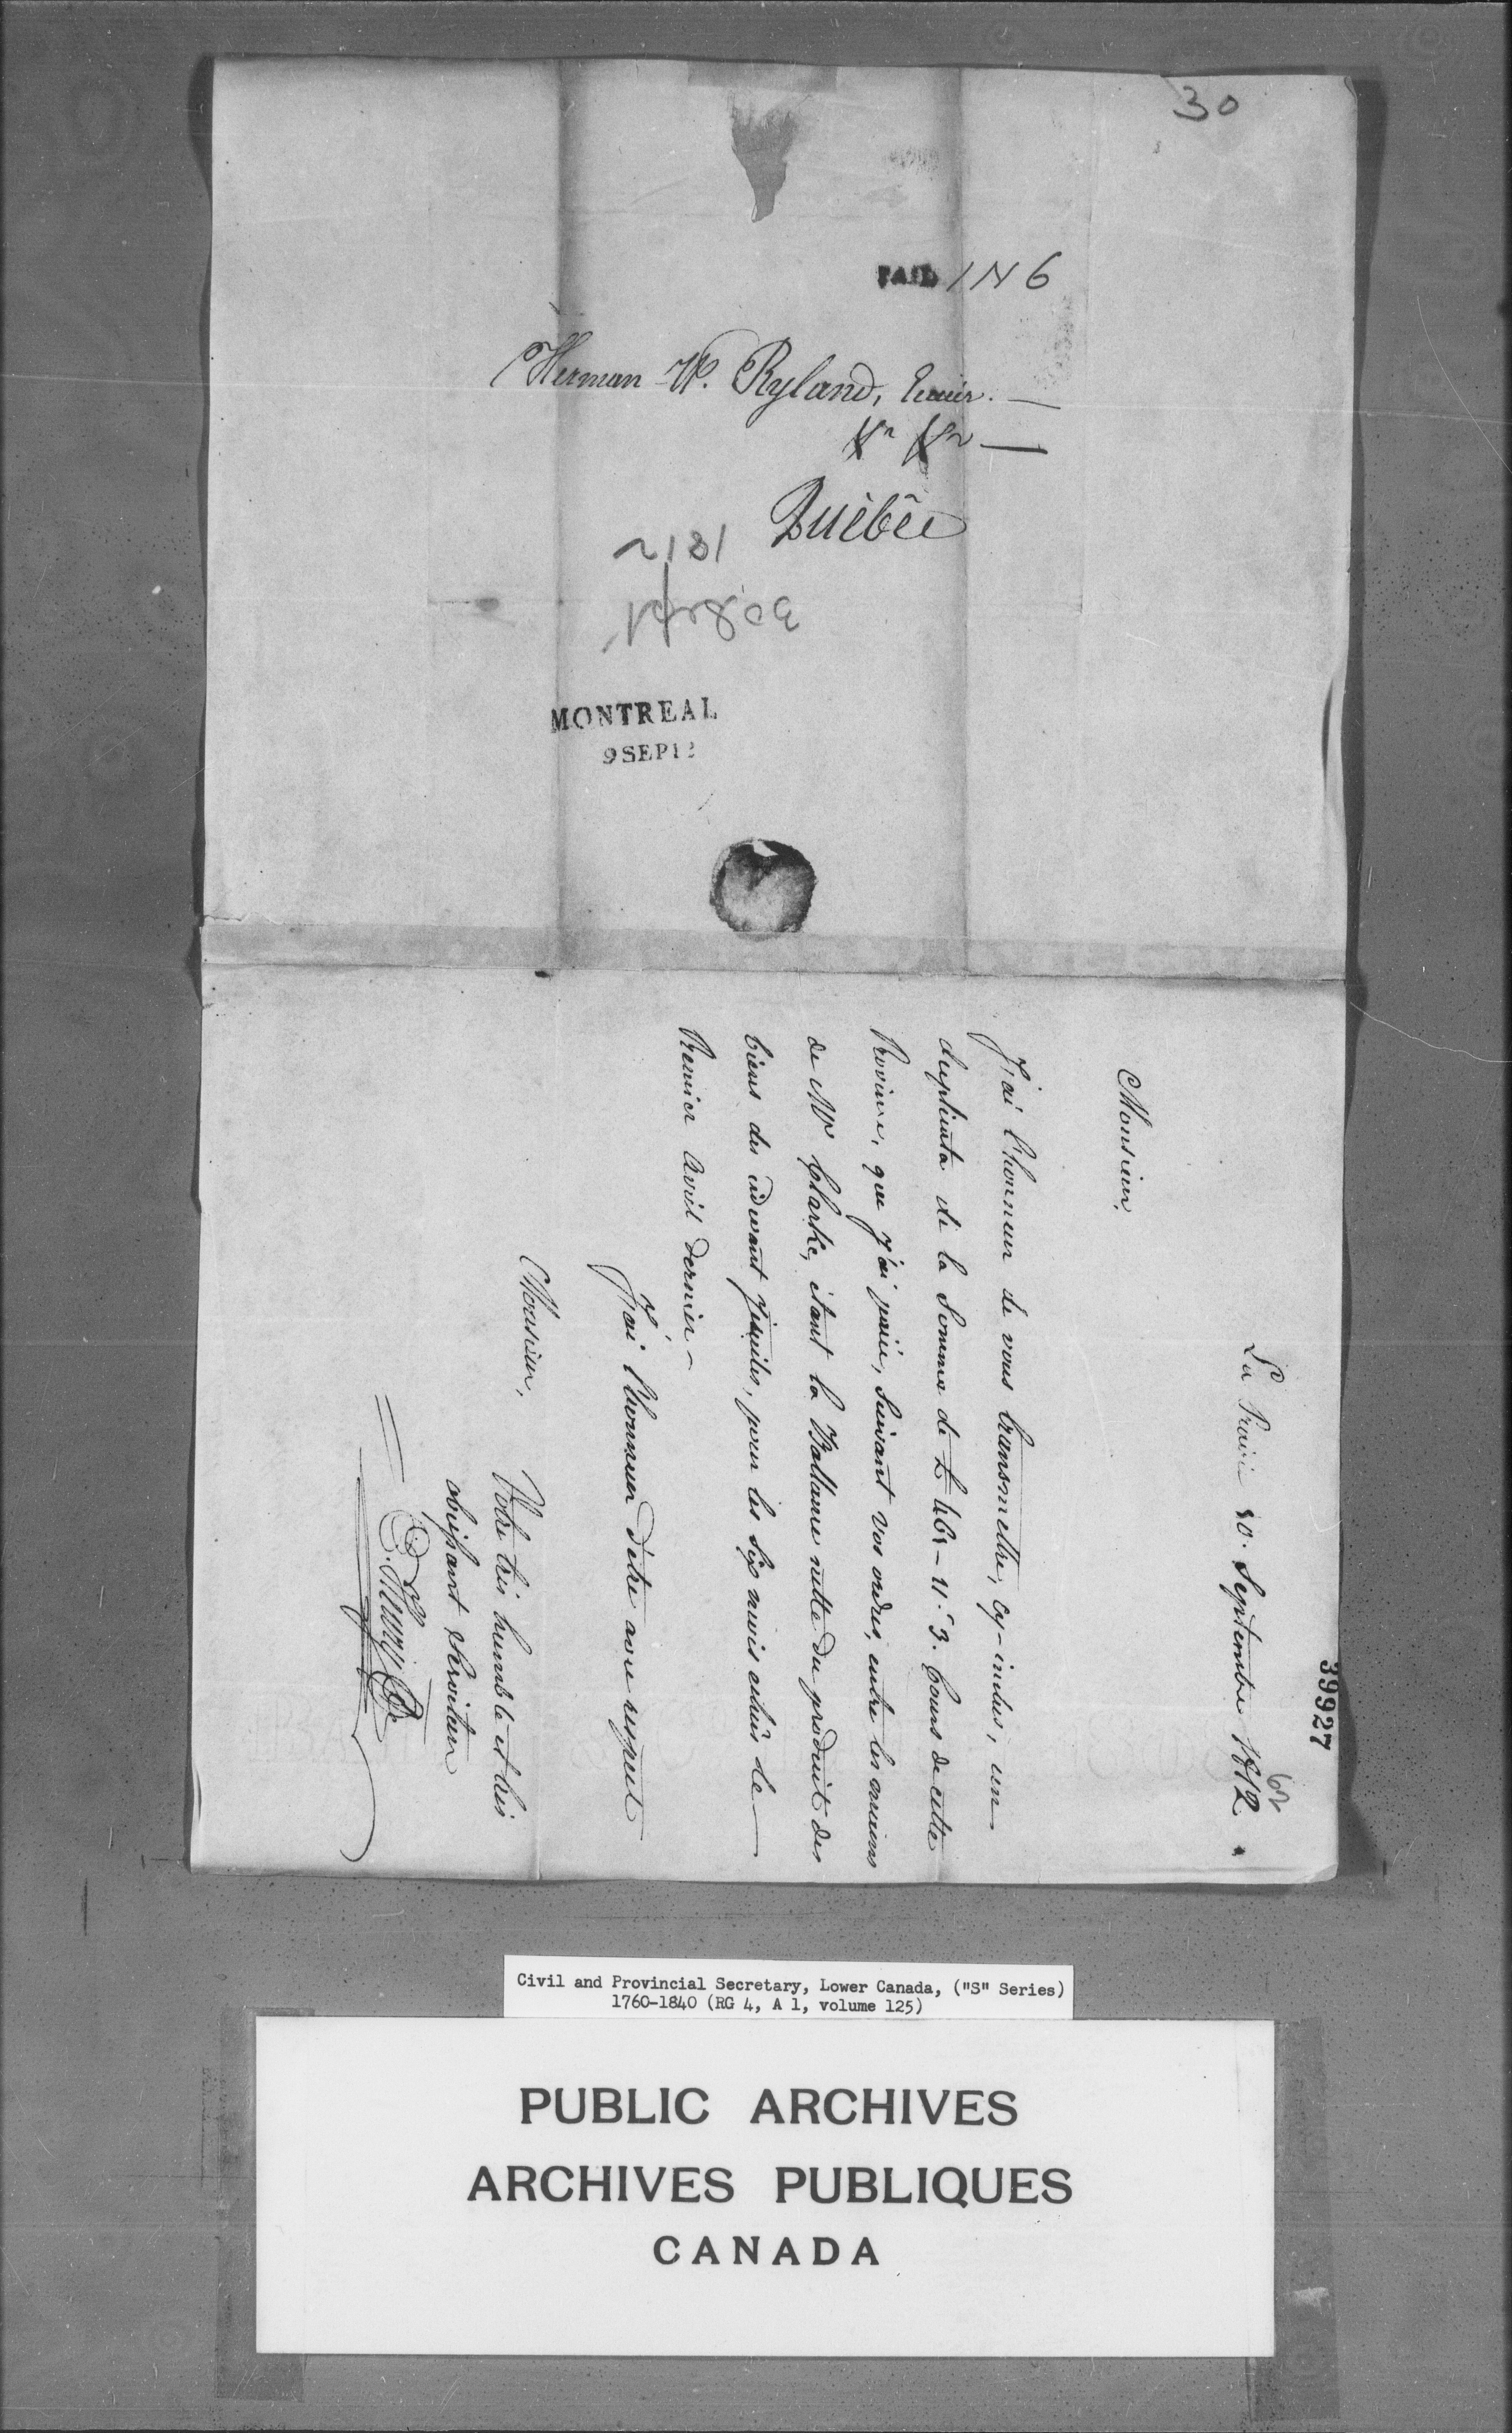 30
PAID 1N6
Herman W. Ryland, Ecuier.
&c &c
Québec
1812
30 Sept
MONTREAL
9 SEP 12
39927
62
La Prairie 30. Septembre 1812
Monsieur,
J'ai l'honneur de vous transmettre, cy-inclus, un
duplicata de la Somme de £ 461-11.3. Cours de cette
Province, que j'ai paié, Suivant vos ordres, entre les mains
de Mr Clarke, étant la Ballance nette du produit des
biens des cidevant Jésuites, pour les Six mois échûs le
Premier avril dernier -
J'ai l'honneur d'etre avec respect
Monsieur,
Votre très humble et très
obéissant Serviteur
E. Henry
Civil and Provincial Secretary, Lower Canada, ("S" Series)
1760-1840 (RG 4, A 1, volume 125)
PUBLIC ARCHIVES
ARCHIVES PUBLIQUES
CANADA